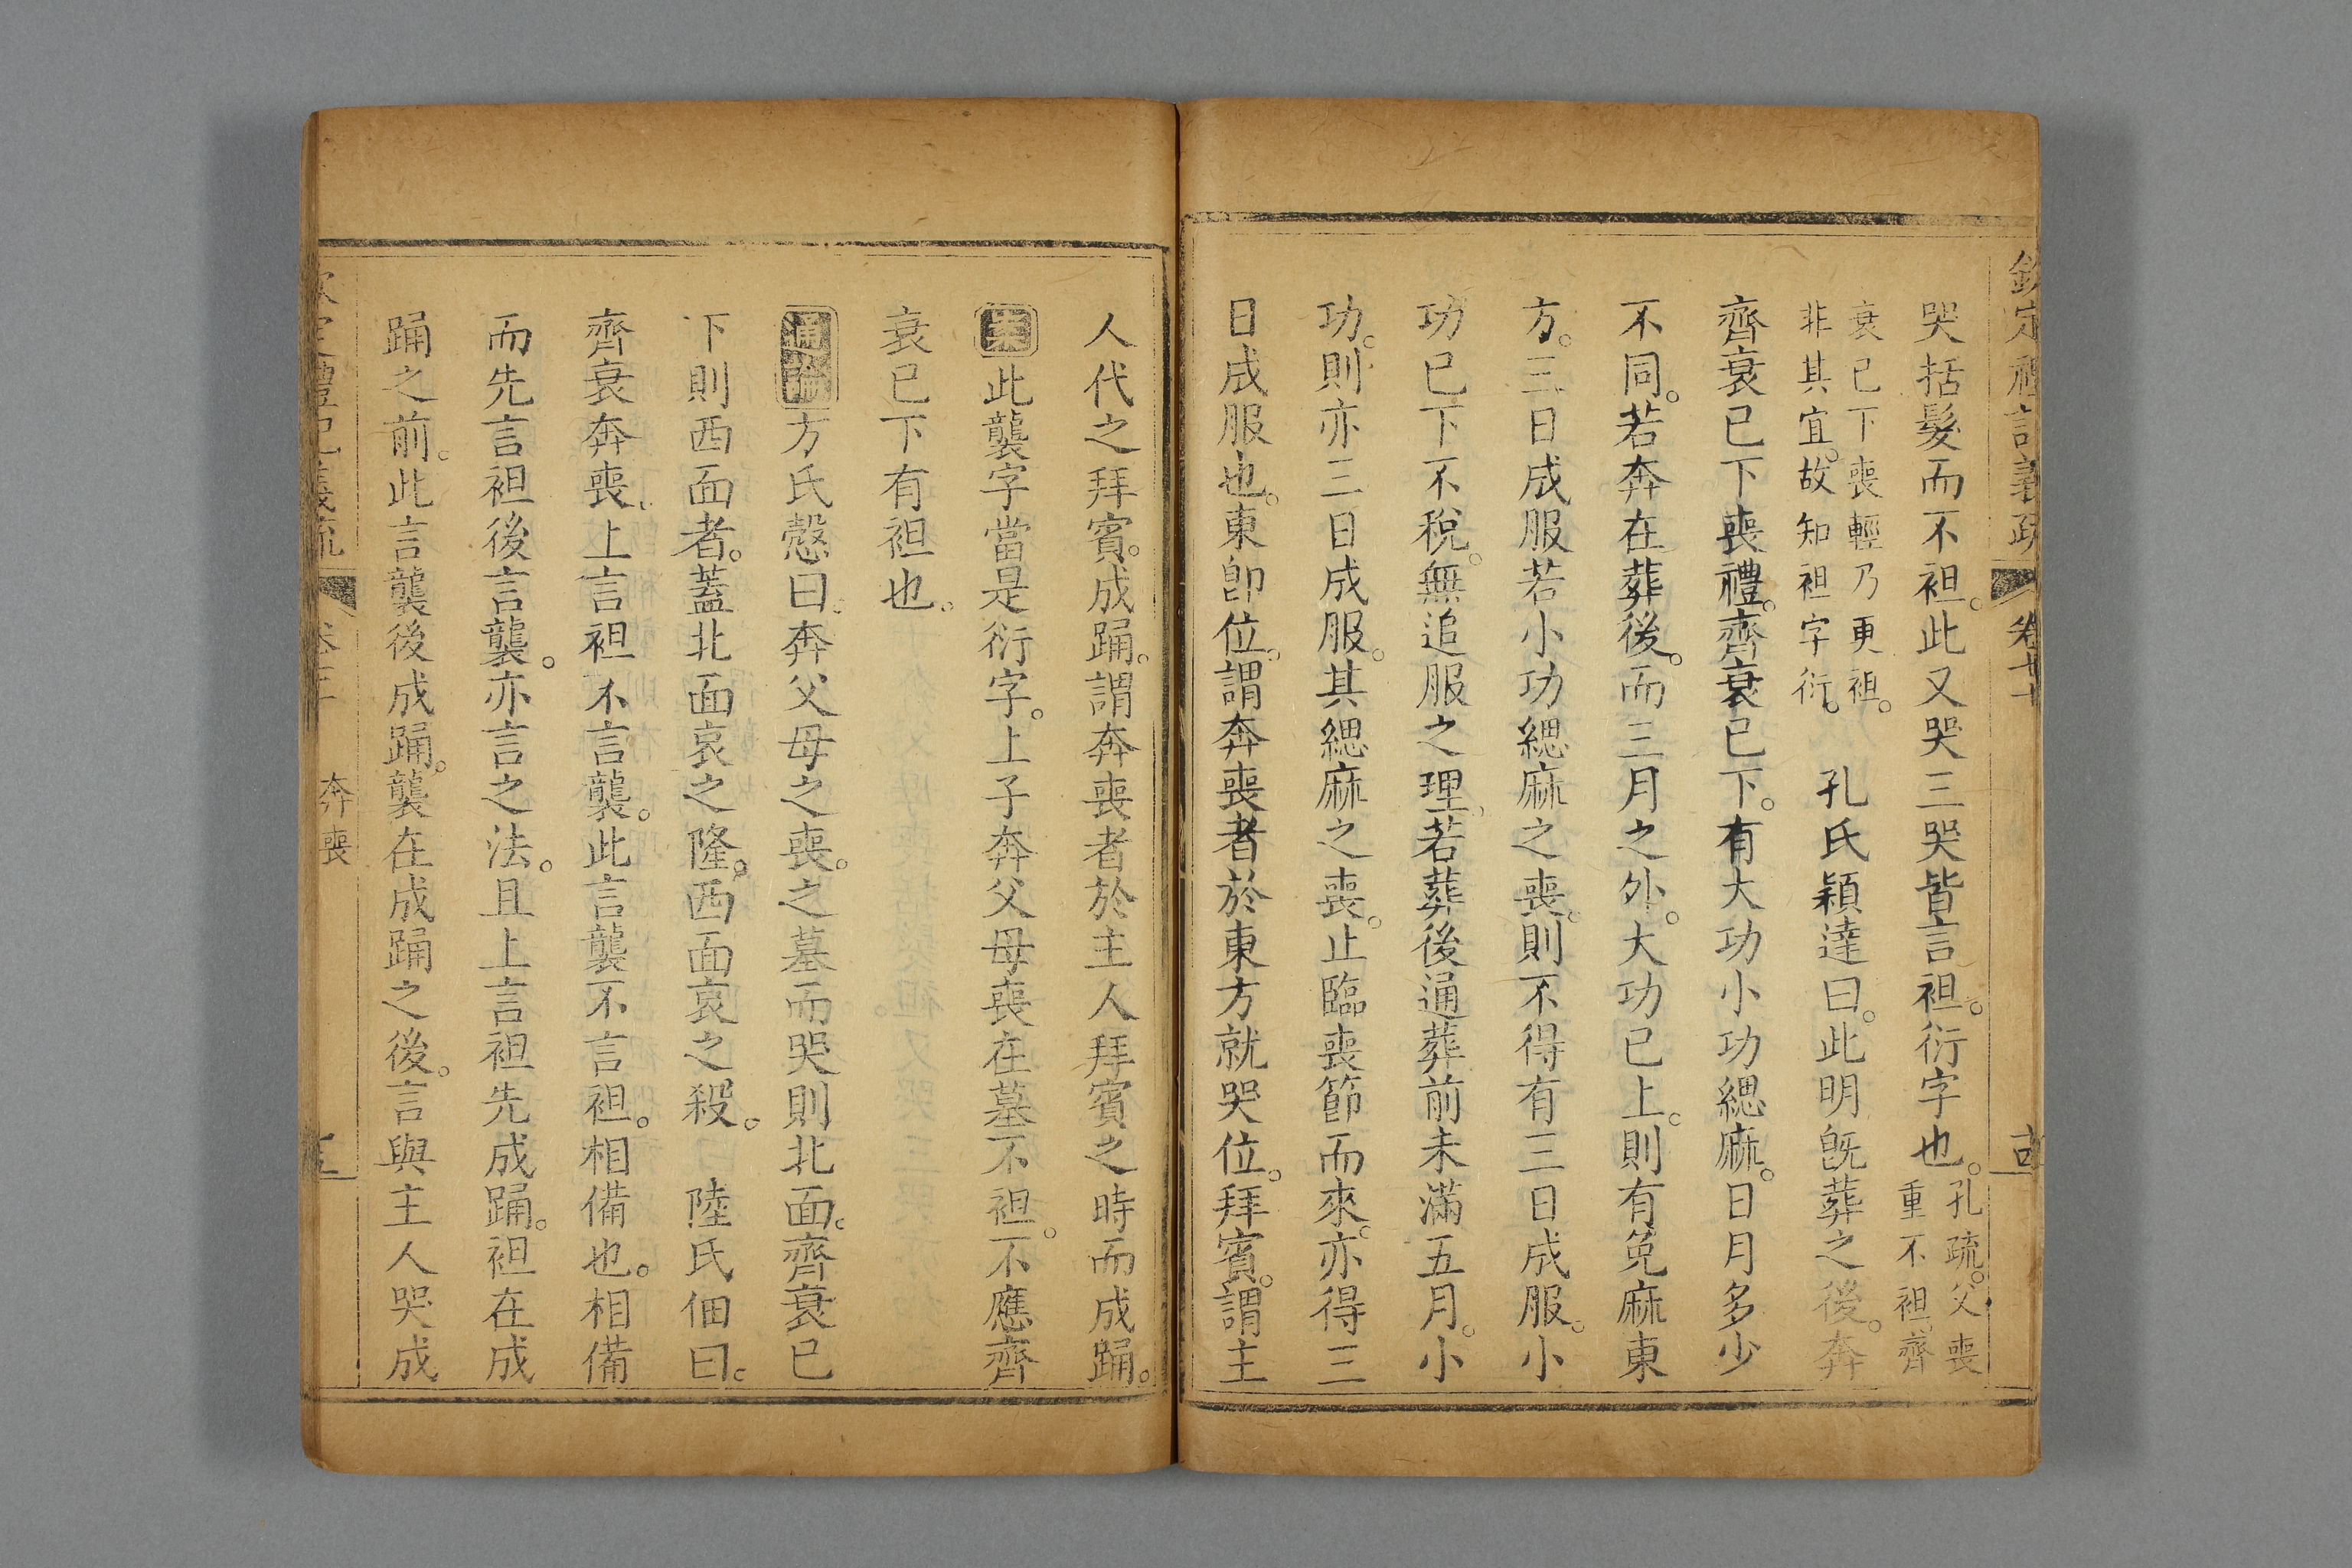 哭括髮而不袒。此又哭三哭皆言袒。衍字也。孔疏。父喪重不袒。齊
衰已下喪輕乃更袒。非其宜。故知袒字衍。　孔氏穎達曰。此明旣葬之後。奔
齊衰已下喪禮。齊衰已下。有大功小功緦麻。日月多少
不同。若奔在葬後。而三月之外。大功已上。則有免麻東
方。三日成服若小功緦麻之喪。則不得有三日成服。小
功已下不稅。無追服之理。若葬後通葬前未滿五月。小
功。則亦三日成服。其緦麻之喪。止臨喪節而來。亦得三
日成服也。東卽位。謂奔喪者於東方就哭位。拜賓。謂主
人代之拜賓。成踊。謂奔喪者於主人拜賓之時而成踊。
案此襲字當是衍字。上子奔父母喪在墓不袒。不應齊
衰已下有袒也。
通論方氏慤曰。奔父母之喪。之墓而哭則北面。齊衰已
下則西面者。蓋北面哀之隆。西面哀之殺。　陸氏佃曰。
齊衰奔喪。上言袒不言襲。此言襲不言袒。相備也。相備
而先言袒後言襲。亦言之法。且上言袒先成踊。袒在成
踊之前。此言襲後成踊。襲在成踊之後。言與主人哭成
奔喪